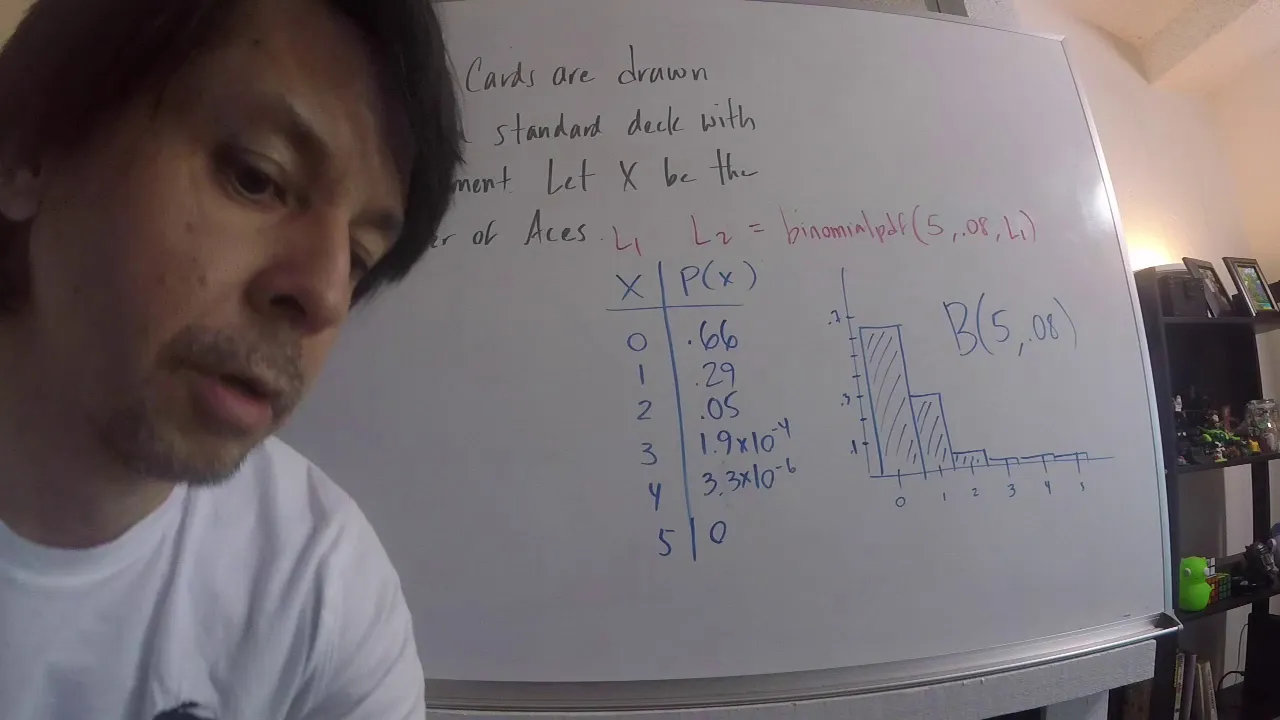 Cards are drawn
standard deck with
ment. Let X be the
er of Aces.
L1 L2 = binomialpdf(5,.08,L1)
X P(x)
0 .66
1 .29
2 .05
3 1.9x10^-4
4 3.3x10^-6
5 0
B(5,.08)
.7
.3
.1
0 1 2 3 4 5